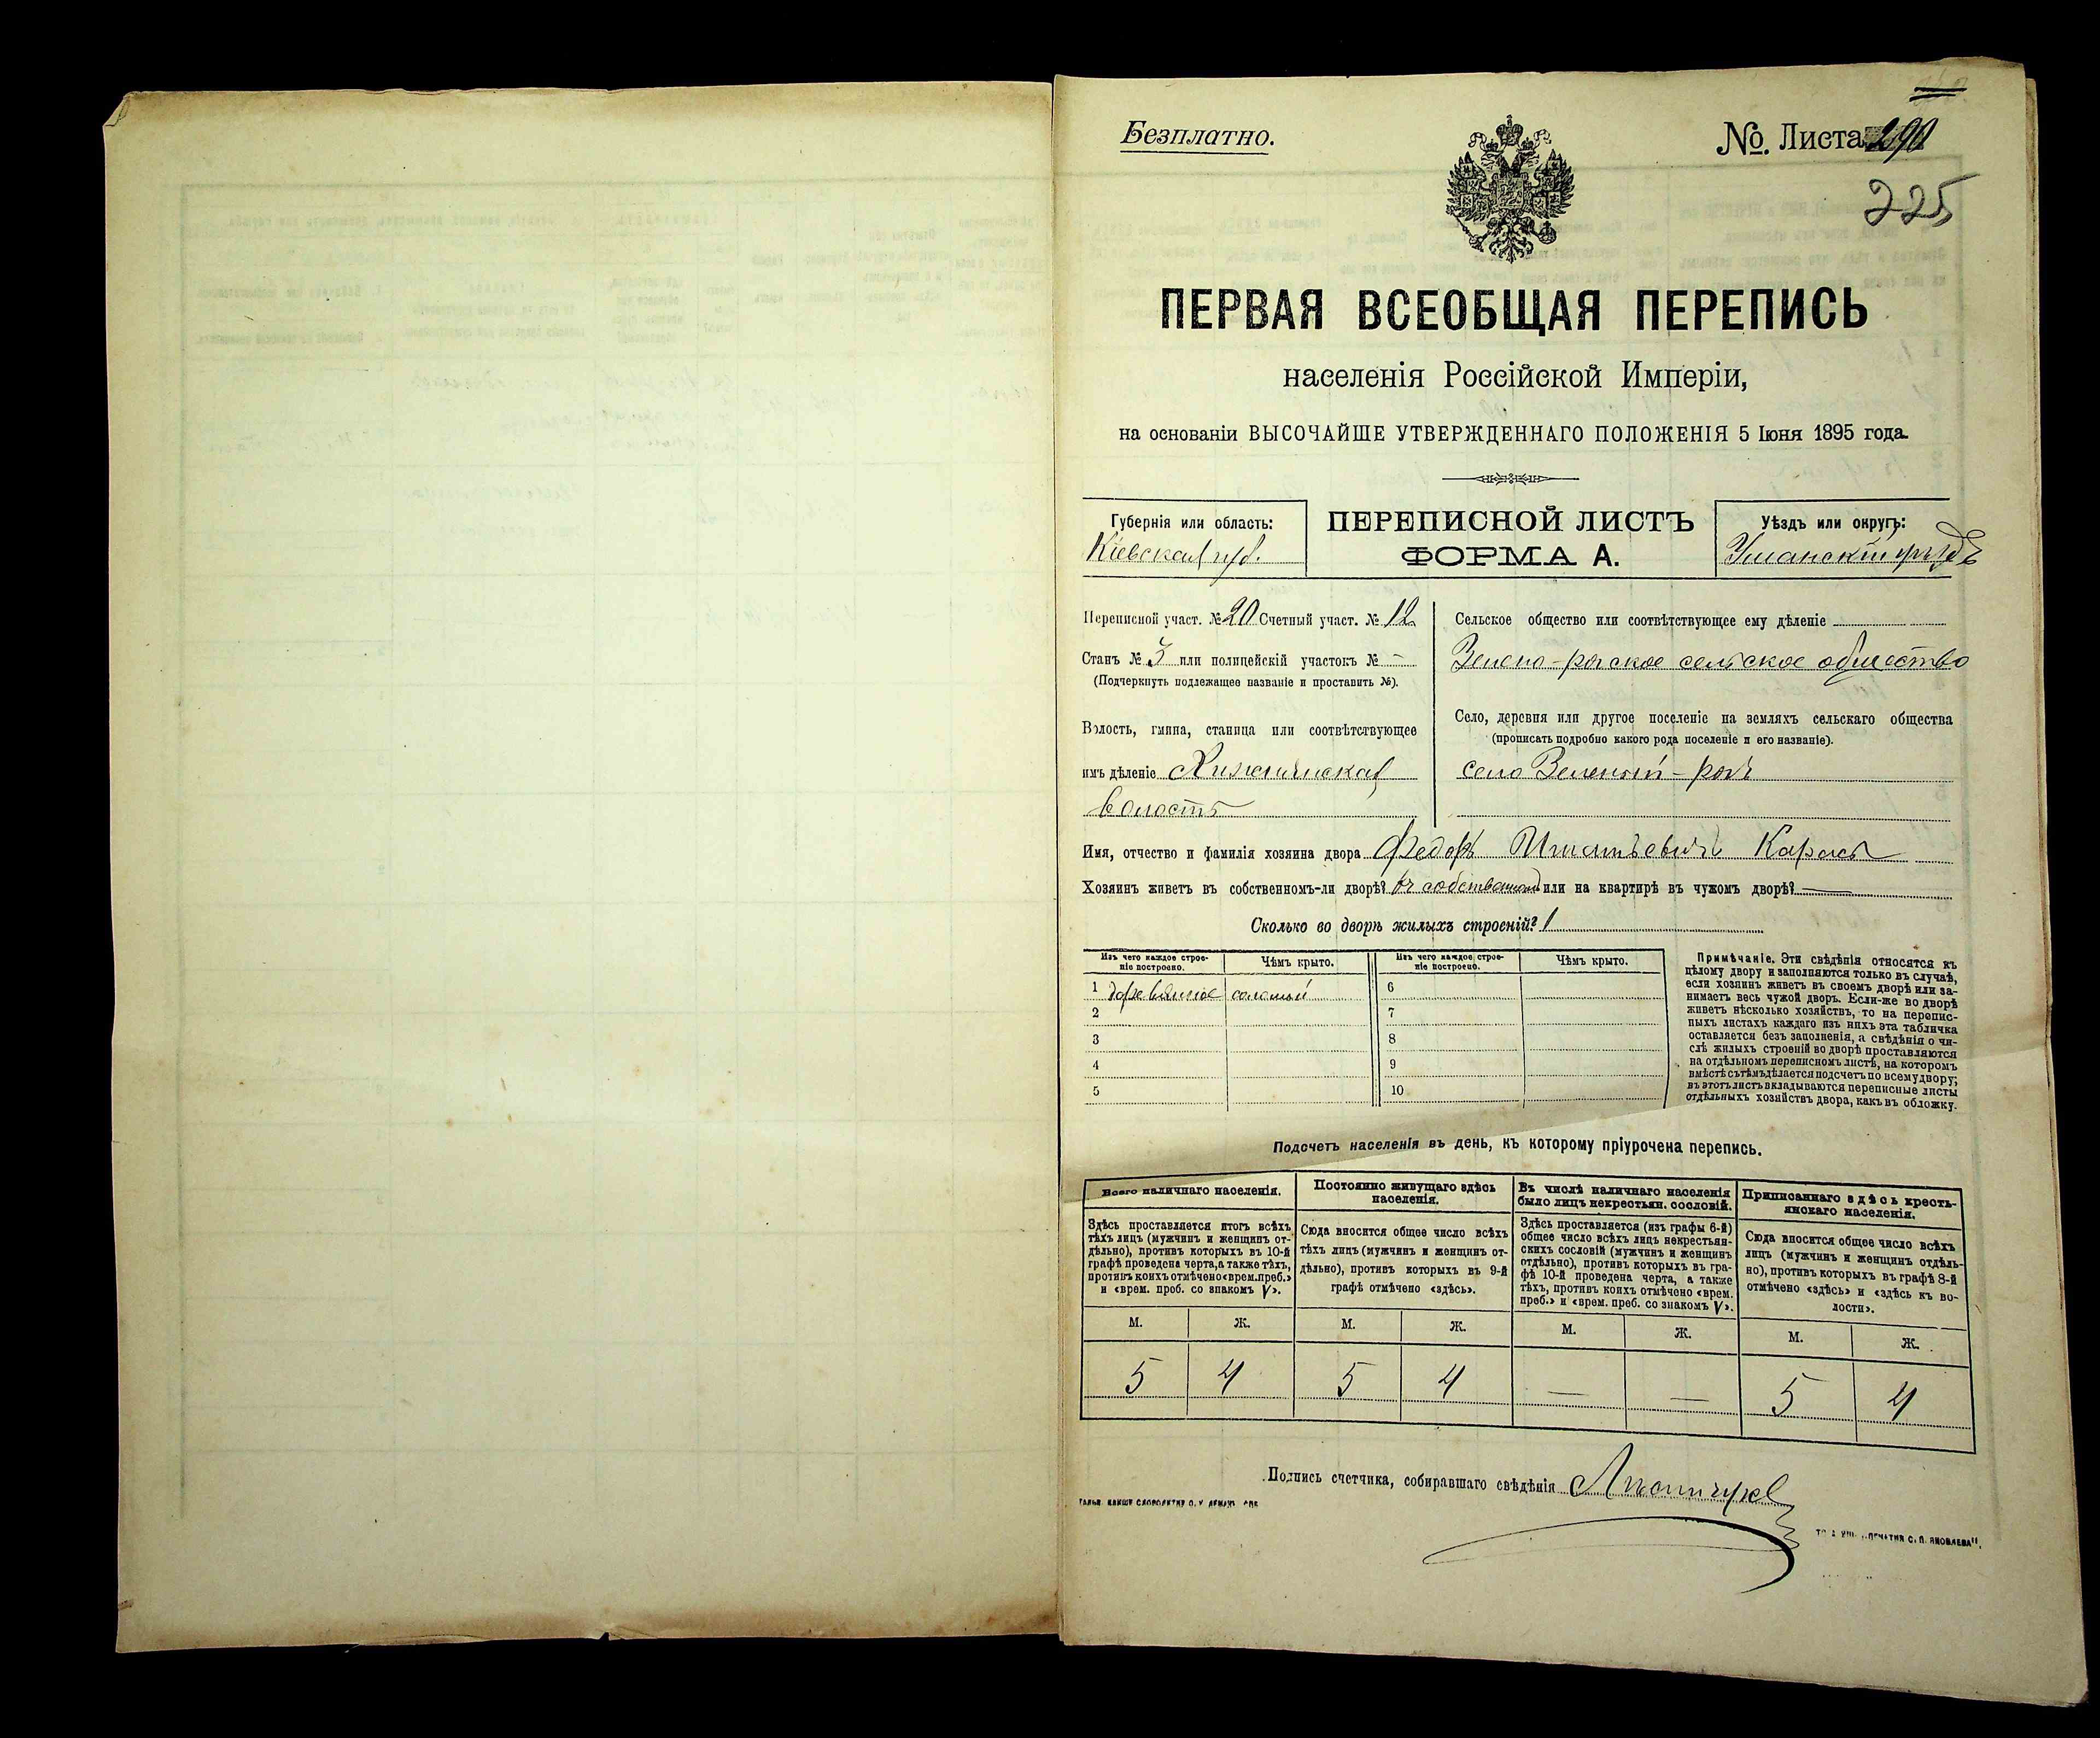 Безплатно.
№. Листа 290
225
ПЕРВАЯ ВСЕОБЩАЯ ПЕРЕПИСЬ
населенія Россійской Имперіи,
на основаніи ВЫСОЧАЙШЕ УТВЕРЖДЕННАГО ПОЛОЖЕНІЯ 5 Іюня 1895 года.
Губернія или область:
Кіевская губ.
ПЕРЕПИСНОЙ ЛИСТЪ
ФОРМА А.
Уѣздъ или округъ:
Уманскій уѣздъ
Переписной участ. № 20 Счетный участ. № 12
Станъ № 3 или полицейскій участокъ № —
(Подчеркнуть подлежащее названіе и проставить №).
Волость, гмина, станица или соотвѣтствующее
имъ дѣленіе
волость
Сельское общество или соотвѣтствующее ему дѣленіе
Зелено-рогское сельское общество
Село, деревня или другое поселеніе на земляхъ сельскаго общества
(прописать подробно какого рода поселеніе и его названіе).
село Зеленый-рогъ
Имя, отчество и фамилія хозяина двора Федоръ Игнатьевичъ
Хозяинъ живетъ въ собственномъ-ли дворѣ? въ собственномъ или на квартирѣ въ чужомъ дворѣ? —
Сколько во дворѣ жилыхъ строеній? 1
Изъ чего каждое строе-
ніе построено.
Чѣмъ крыто.
Изъ чего каждое строе-
ніе построено.
Чѣмъ крыто.
1 деревянное соломой 6
2 7
3 8
4 9
5 10
Примѣчаніе. Эти свѣдѣнія относятся къ
цѣлому двору и заполняются только въ случаѣ,
если хозяинъ живетъ въ своемъ дворѣ или за-
нимаетъ весь чужой дворъ. Если-же во дворѣ
живетъ нѣсколько хозяйствъ, то на перепис-
ныхъ листахъ каждаго изъ нихъ эта табличка
оставляется безъ заполненія, а свѣдѣнія о чи-
слѣ жилыхъ строеній во дворѣ проставляются
на отдѣльномъ переписномъ листѣ, на которомъ
вмѣстѣ съ тѣмъ дѣлается подсчетъ по всему двору;
въ этотъ листъ вкладываются переписные листы
отдѣльныхъ хозяйствъ двора, какъ въ обложку.
Подсчетъ населенія въ день, къ которому пріурочена перепись.
Всего наличнаго населенія.
Здѣсь проставляется итогъ всѣхъ
тѣхъ лицъ (мужчинъ и женщинъ от-
дѣльно), противъ которыхъ въ 10-й
графѣ проведена черта, а также тѣхъ,
противъ коихъ отмѣчено «врем. преб.»
и «врем. проб. со знакомъ V».
Постоянно живущаго здѣсь
населенія.
Сюда вносится общее число всѣхъ
тѣхъ лицъ (мужчинъ и женщинъ от-
дѣльно), противъ которыхъ въ 9-й
графѣ отмѣчено «здѣсь».
Въ числѣ наличнаго населенія
было лицъ некрестьян. сословій.
Здѣсь проставляется (изъ графы 6-й)
общее число всѣхъ лицъ некрестьян-
скихъ сословій (мужчинъ и женщинъ
отдѣльно), противъ которыхъ въ гра-
фѣ 10-й проведена черта, а также
тѣхъ, противъ коихъ отмѣчено «врем.
преб.» и «врем. преб. со знакомъ V».
Приписаннаго здѣсь кресть-
янскаго населенія.
Сюда вносится общее число всѣхъ
лицъ (мужчинъ и женщинъ отдѣль-
но), противъ которыхъ въ графѣ 8-й
отмѣчено «здѣсь» и «здѣсь къ во-
лости».
М. Ж. М. Ж. М. Ж. М. Ж.
5 4 5 4 — — 5 4
Подпись счетчика, собиравшаго свѣдѣнія